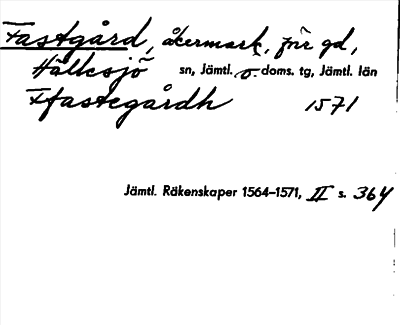 Fastgård, åkermark, förr gd,
Hällesjö sn, Jämtl. ö. doms. tg, Jämtl. län
Ffastegårdh 1571
Jämtl. Räkenskaper 1564-1571, II s. 364